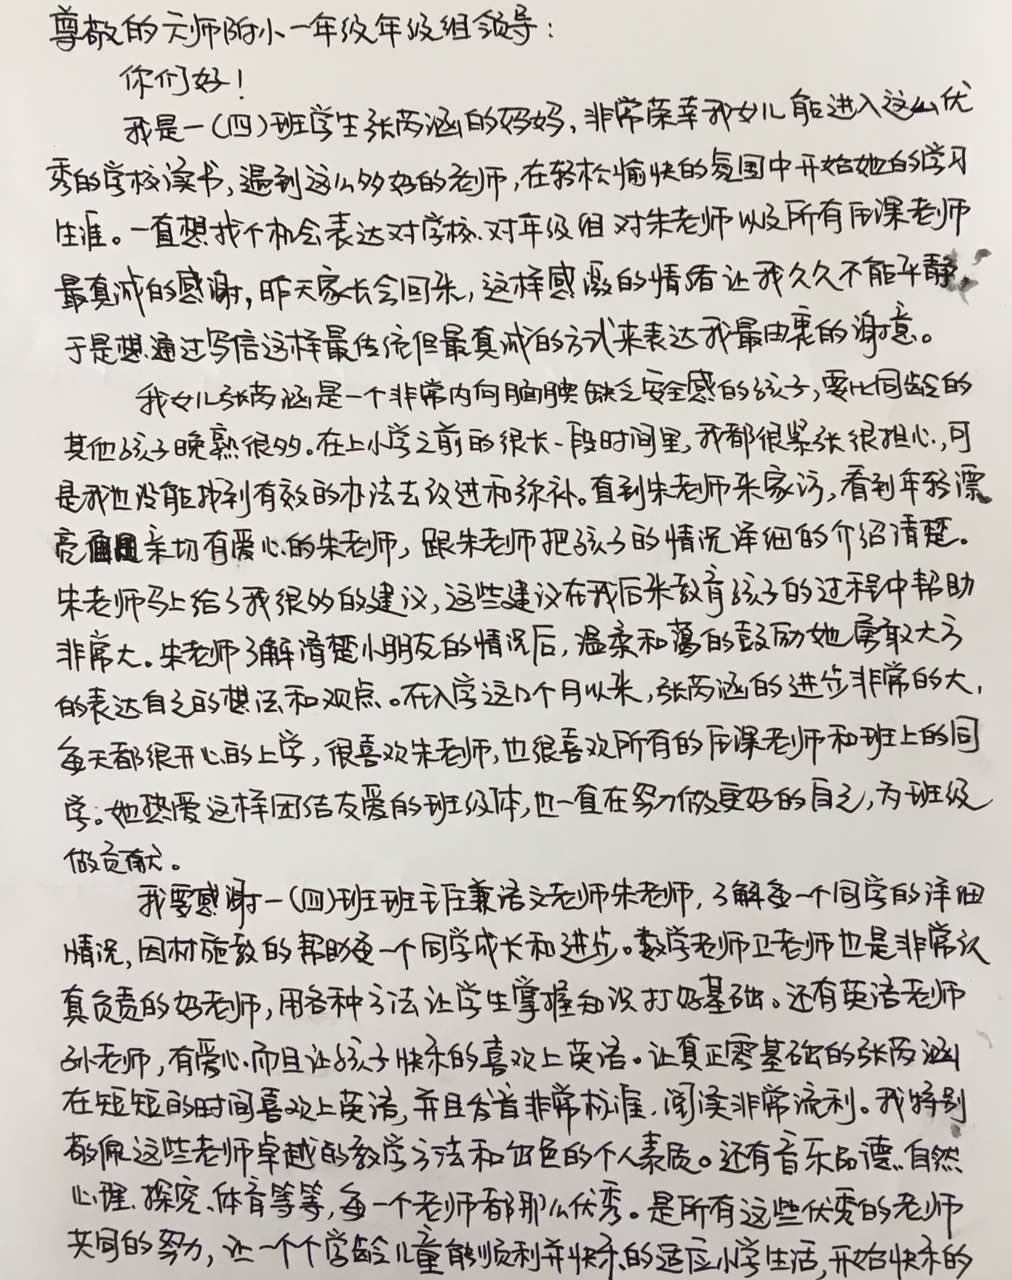 尊敬的元师附小一年级年级组领导：
你们好！
我是一(四)班学生张芮涵的妈妈，非常荣幸我女儿能进入这么优
秀的学校读书，遇到这么多好的老师，在轻松愉快的氛围中开始她的学习
生涯。一直想找个机会表达对学校、对年级组对朱老师以及所有任课老师
最真诚的感谢，昨天家长会回来，这样感激的情绪让我久久不能平静，
于是想通过写信这样最传统但最真诚的方式来表达我最由衷的谢意。
我女儿张芮涵是一个非常内向腼腆缺乏安全感的孩子，要比同龄的
其他孩子晚熟很多。在上小学之前的很长一段时间里，我都很紧张很担心，可
是我也没能找到有效的办法去改进和弥补。直到朱老师来家访，看到年轻漂
亮亲切有爱心的朱老师，跟朱老师把孩子的情况详细的介绍清楚。
朱老师马上给了我很多的建议，这些建议在我后来教育孩子的过程中帮助
非常大。朱老师了解清楚小朋友的情况后，温柔和蔼的鼓励她勇敢大方
的表达自己的想法和观点。在入学这几个月以来，张芮涵的进步非常的大，
每天都很开心的上学，很喜欢朱老师，也很喜欢所有的任课老师和班上的同
学。她热爱这样团结友爱的班级体，也一直在努力做更好的自己，为班级
做贡献。
我要感谢一(四)班班主任兼语文老师朱老师，了解每一个同学的详细
情况，因材施教的帮助每一个同学成长和进步。数学老师卫老师也是非常认
真负责的好老师，用各种方法让学生掌握知识打好基础。还有英语老师
孙老师，有爱心而且让孩子快乐的喜欢上英语。让真正零基础的张芮涵
在短短的时间喜欢上英语，并且发音非常标准，阅读非常流利。我特别
敬佩这些老师卓越的教学方法和出色的个人素质。还有音乐、品德、自然
心理、探究、体育等等，每一个老师都那么优秀。是所有这些优秀的老师
共同的努力，让一个个学龄儿童能顺利并快乐的适应小学生活，开始快乐的